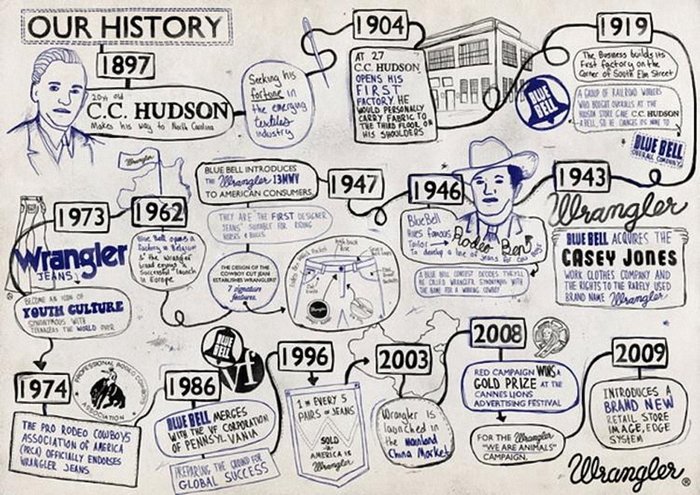 OUR HISTORY
1897
20yr old
C.C. HUDSON
Makes his way to North Carolina
Seeking his
fortune in
the emerging
textiles
industry
1904
AT 27
C.C. HUDSON
OPENS HIS
FIRST
FACTORY. HE
WOULD PERSONALLY
CARRY FABRIC TO
THE THIRD FLOOR ON
HIS SHOULDERS
1919
The Business builds its
First factory on the
Corner of South Elm Street
BLUE BELL
A GROUP OF RAILROAD WORKERS
WHO BOUGHT OVERALLS AT THE
HUDSON STORE GAVE C.C. HUDSON
A BELL, SO HE CHANGES ITS NAME TO
BLUE BELL
OVERALL COMPANY
1943
Wrangler
BLUE BELL ACQUIRES THE
CASEY JONES
WORK CLOTHES COMPANY AND
THE RIGHTS TO THE RARELY USED
BRAND NAME Wrangler
1946
Blue Bell
Hires famous
Tailor
Rodeo Ben
To develop a line of jeans for cow boys
A BLUE BELL CONTEST DECIDES THEY'LL
BE CALLED WRANGLER. SYNONYMOUS WITH
THE NAME FOR A WORKING COWBOY
1947
BLUE BELL INTRODUCES
THE Wrangler 13MWZ
TO AMERICAN CONSUMERS.
THEY ARE THE FIRST DESIGNER
JEANS SUITABLE FOR RIDING
THE DESIGN OF THE
COWBOY CUT JEAN
ESTABLISHES WRANGLERS'
7 signature
features.
1962
Wrangler
Blue Bell opens a
Factory in Belgium
& the Wrangler
brand enjoys a
Successful launch
in Europe
1973
Wrangler
JEANS
BECOME AN ICON OF
YOUTH CULTURE
SYNONYMOUS WITH
TEENAGERS THE WORLD OVER
1974
PROFESSIONAL RODEO COWBOYS
ASSOCIATION
THE PRO RODEO COWBOYS
ASSOCIATION OF AMERICA
(PRCA) OFFICIALLY ENDORSES
WRANGLER JEANS.
1986
BLUE BELL
vf
BLUE BELL MERGES
WITH THE VF CORPORATION
OF PENNSYLVANIA
PREPARING THE GROUND FOR
GLOBAL SUCCESS
1996
1 IN EVERY 5
PAIRS OF JEANS
SOLD
IN AMERICA IS
Wrangler
2003
Wrangler is
launched in
the mainland
China Market
2008
RED CAMPAIGN WINS A
GOLD PRIZE AT THE
CANNES LIONS
ADVERTISING FESTIVAL
FOR THE Wrangler
"WE ARE ANIMALS"
CAMPAIGN.
2009
INTRODUCES A
BRAND NEW
RETAIL STORE
IMAGE, EDGE
SYSTEM
Wrangler®